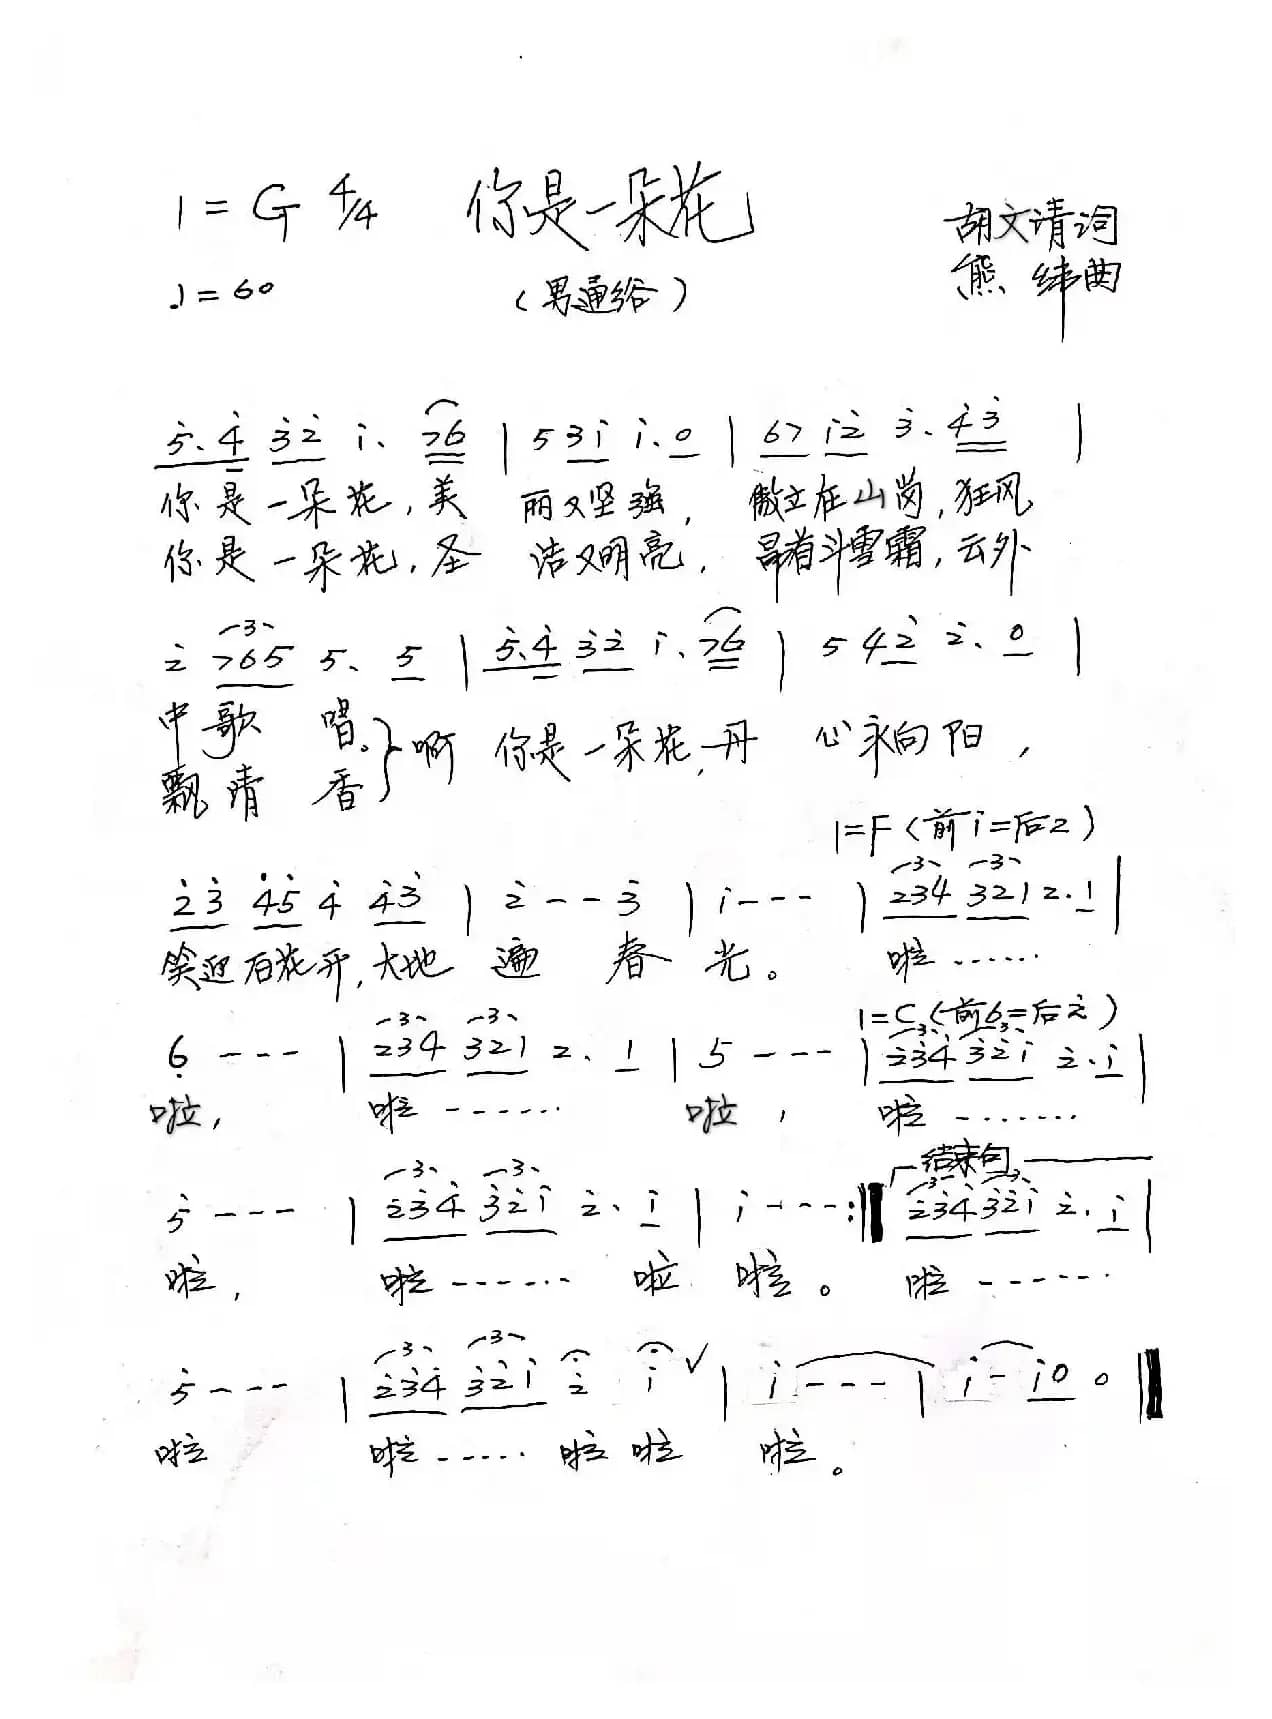 1=G 4/4 你是一朵花 胡文请词
♩=60 (男通俗) 熊 纬曲
5̇.4̇ 3̇2̇ 1̇. 76 | 5 31̇ 1̇.0 | 67 1̇2̇ 3̇. 4̇3̇ |
你是一朵花,美 丽又坚强, 傲立在山岗,狂风
你是一朵花,圣 洁又明亮, 昂首斗雪霜,云外
3
2̇ 765 5. 5 | 5̇.4̇ 3̇2̇ 1̇. 76 | 5 42̇ 2̇. 0 |
中歌 唱。} 啊 你是一朵花,丹 心永向阳,
飘清 香
1=F(前1̇=后2)
3 3
2̇3̇ 4̇5̇ 4̇ 4̇3̇ | 2̇ - - 3̇ | 1̇ - - - | 234 321 2. 1 |
笑迎百花开,大地 遍 春 光。 啦 ……
1=C(前6=后2̇)
3 3 3 3
6̣ - - - | 234 321 2. 1 | 5 - - - | 2̇3̇4̇ 3̇2̇1̇ 2̇. 1̇ |
啦, 啦 …… 啦, 啦 ……
结束句
3 3 3 3
5̇ - - - | 2̇3̇4̇ 3̇2̇1̇ 2̇. 1̇ | 1̇ - - - :‖ 2̇3̇4̇ 3̇2̇1̇ 2̇. 1̇ |
啦, 啦 …… 啦 啦。 啦 ……
3 3
5̇ - - - | 2̇3̇4̇ 3̇2̇1̇ 2̇ 1̇ ✓ | 1̇ - - - | 1̇ - 1̇0 0 ‖
啦 啦 …… 啦 啦 啦。